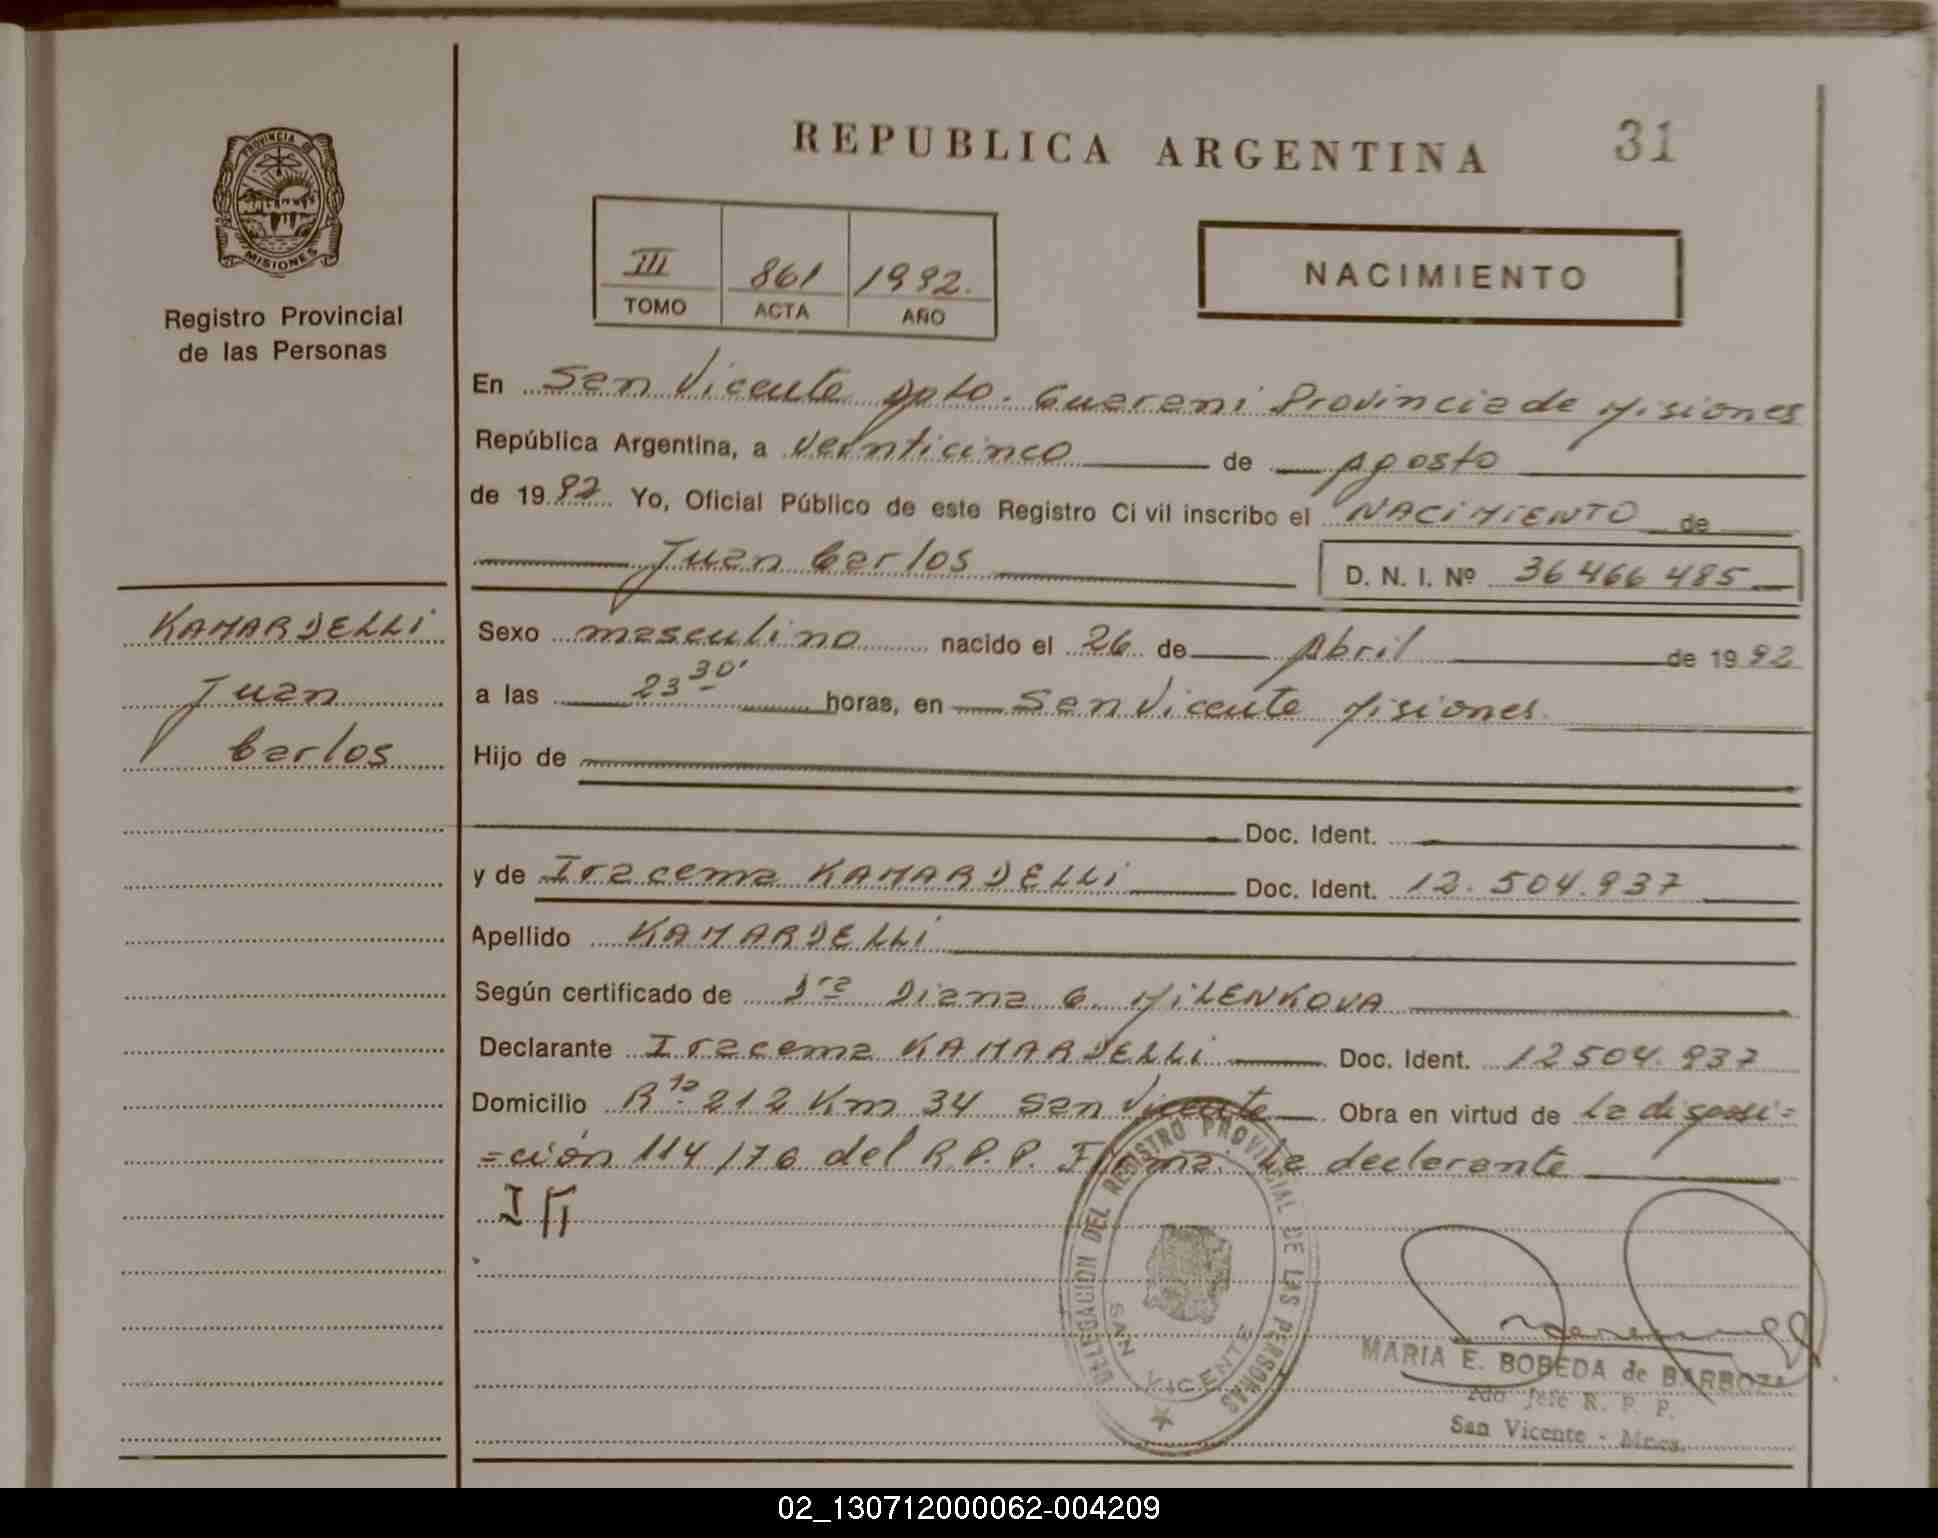 REPUBLICA ARGENTINA
31
PROVINCIA DE
MISIONES
Registro Provincial
de las Personas
III 861 1992.
TOMO ACTA AÑO
NACIMIENTO
En San Vicente Dpto. Guarani Provincia de Misiones
República Argentina, a veinticinco de Agosto
de 1992 Yo, Oficial Público de este Registro Civil inscribo el NACIMIENTO de
Juan Carlos D. N. I. Nº 36466485
KAMARDELLI
Juan
Carlos
Sexo masculino nacido el 26 de Abril de 1992
a las 23 30' horas, en San Vicente Misiones
Hijo de
Doc. Ident.
y de Iracema KAMARDELLI Doc. Ident. 12.504.937
Apellido KAMARDELLI
Según certificado de Dra Diana G. MILENKOVA
Declarante Iracema KAMARDELLI Doc. Ident. 12504.937
Domicilio Rta 212 Km 34 San Vicente Obra en virtud de La disposi=
=ción 114/76 del R.P.P. Firma La declarante
DELEGACION DEL REGISTRO PROVINCIAL DE LAS PERSONAS
SAN VICENTE
MARIA E. BOBEDA de BARBOZA
2do Jefe R. P. P.
San Vicente - Mnes.
02_130712000062-004209